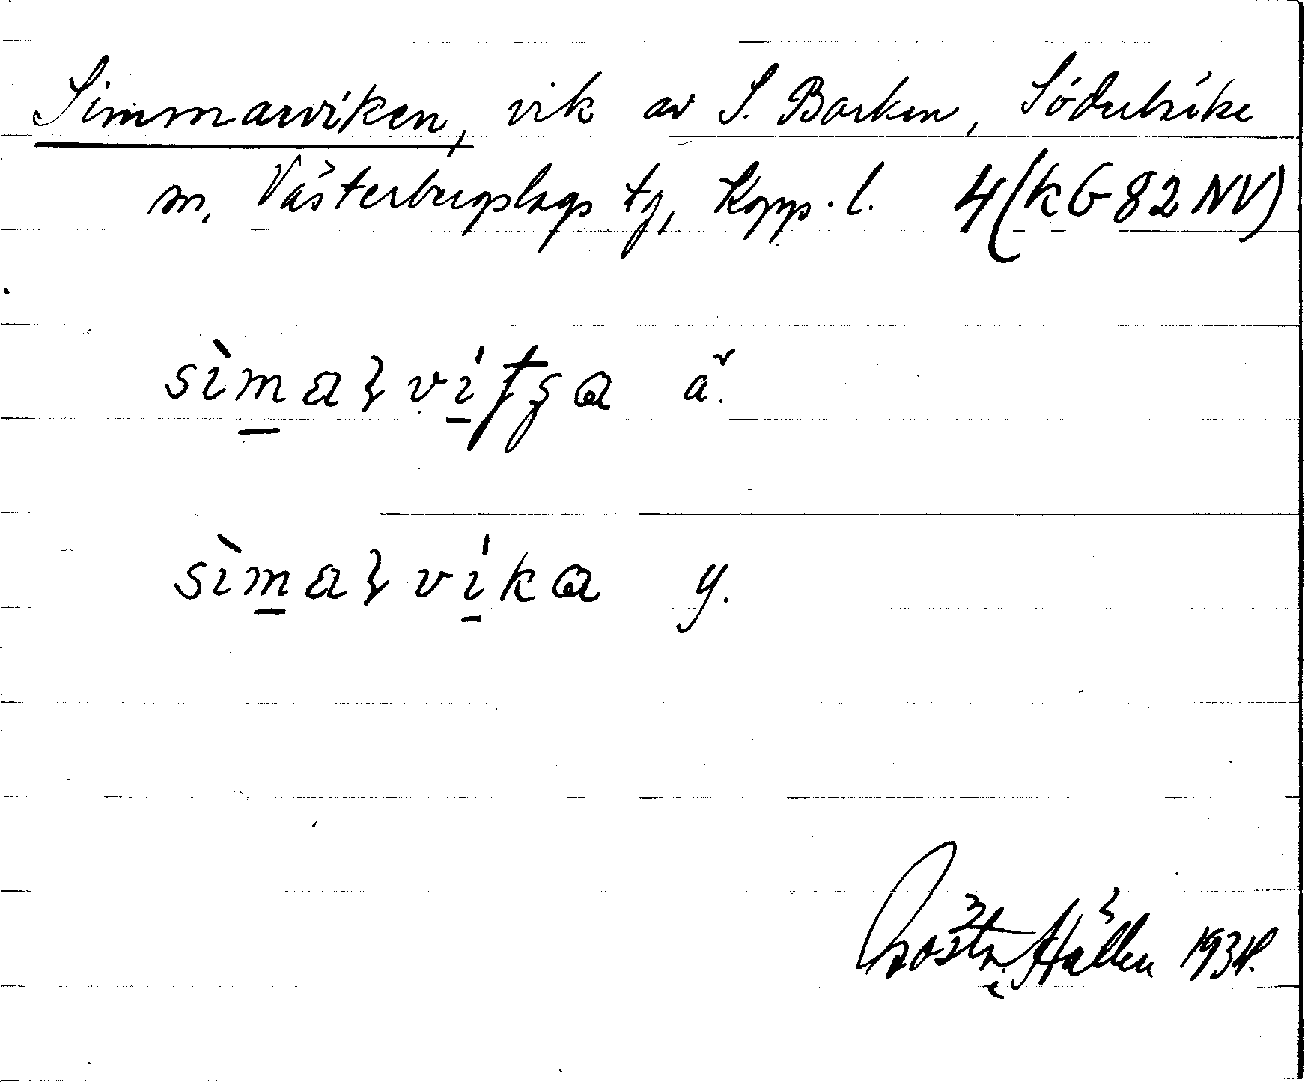 Simmarviken, vik av S. Barken, Söderbärke
sn, Västerbergslags tg, Kopp. l. 4 (kG 82 NV)
sìmaʅvi̍tʃa ä.
sìmaʅvi̍ka y.
Gösta Hallén 1934.